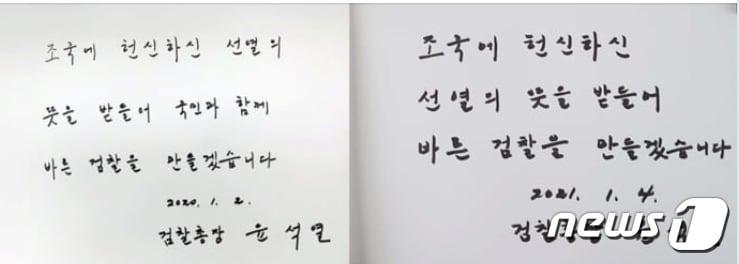 조국에 헌신하신 선열의
뜻을 받들어 국민과 함께
바른 검찰을 만들겠습니다
2020. 1. 2.
검찰총장 윤석열
조국에 헌신하신
선열의 뜻을 받들어
바른 검찰을 만들겠습니다
2021. 1. 4.
검찰총장
news1